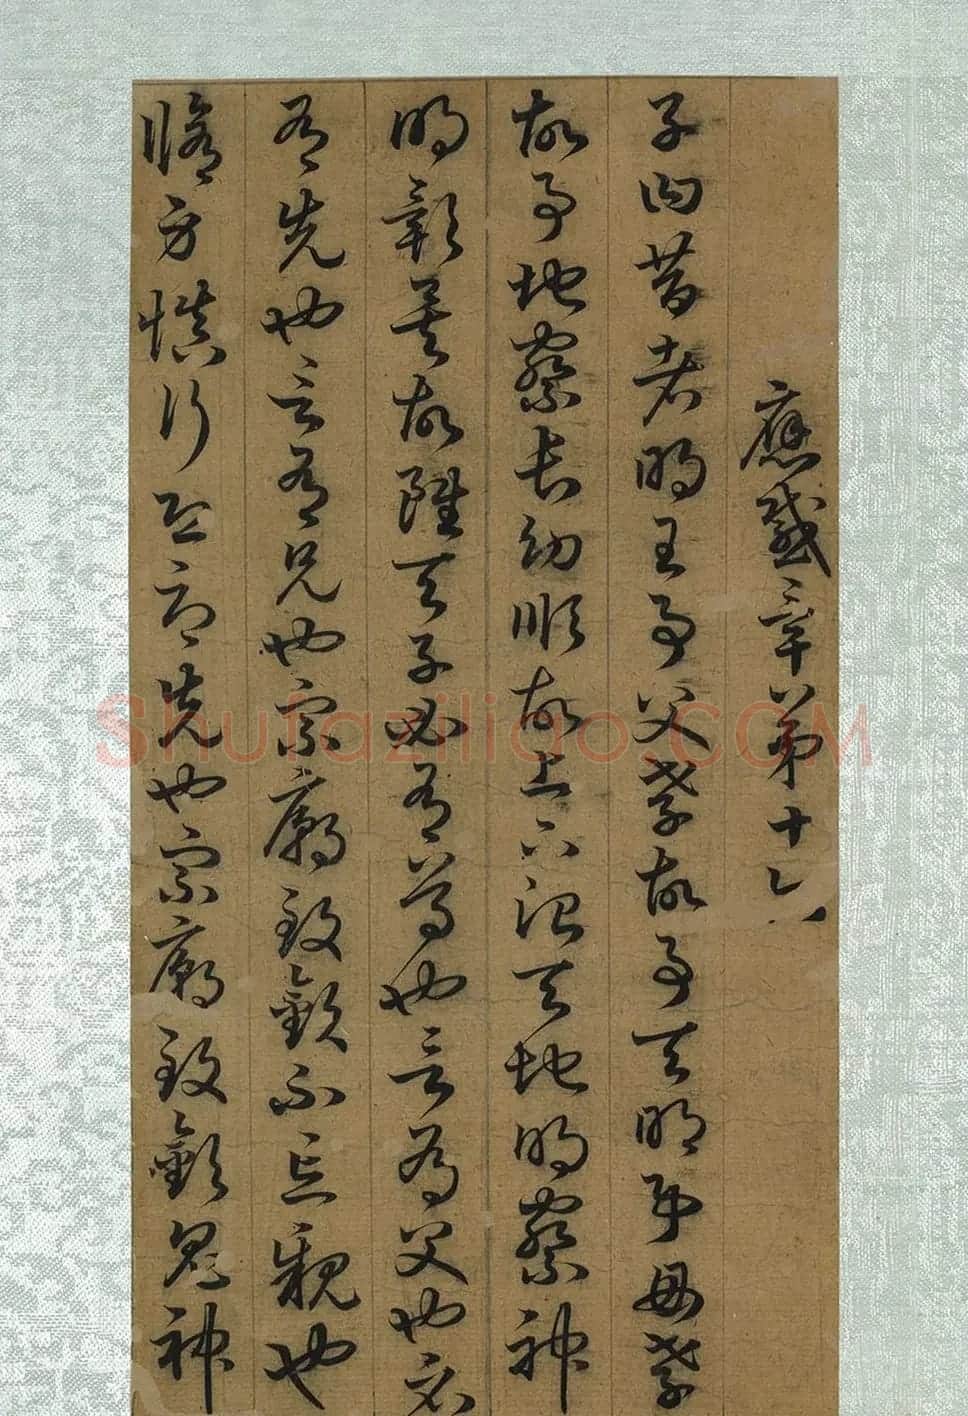 應感章第十六
子曰昔者明王事父孝故事天明事母孝
故事地察長幼順故上下治天地明察神
明彰矣故雖天子必有尊也言有父也必
有先也言有兄也宗廟致敬不忘親也
脩身慎行恐辱先也宗廟致敬鬼神
Shufaziliao.COM